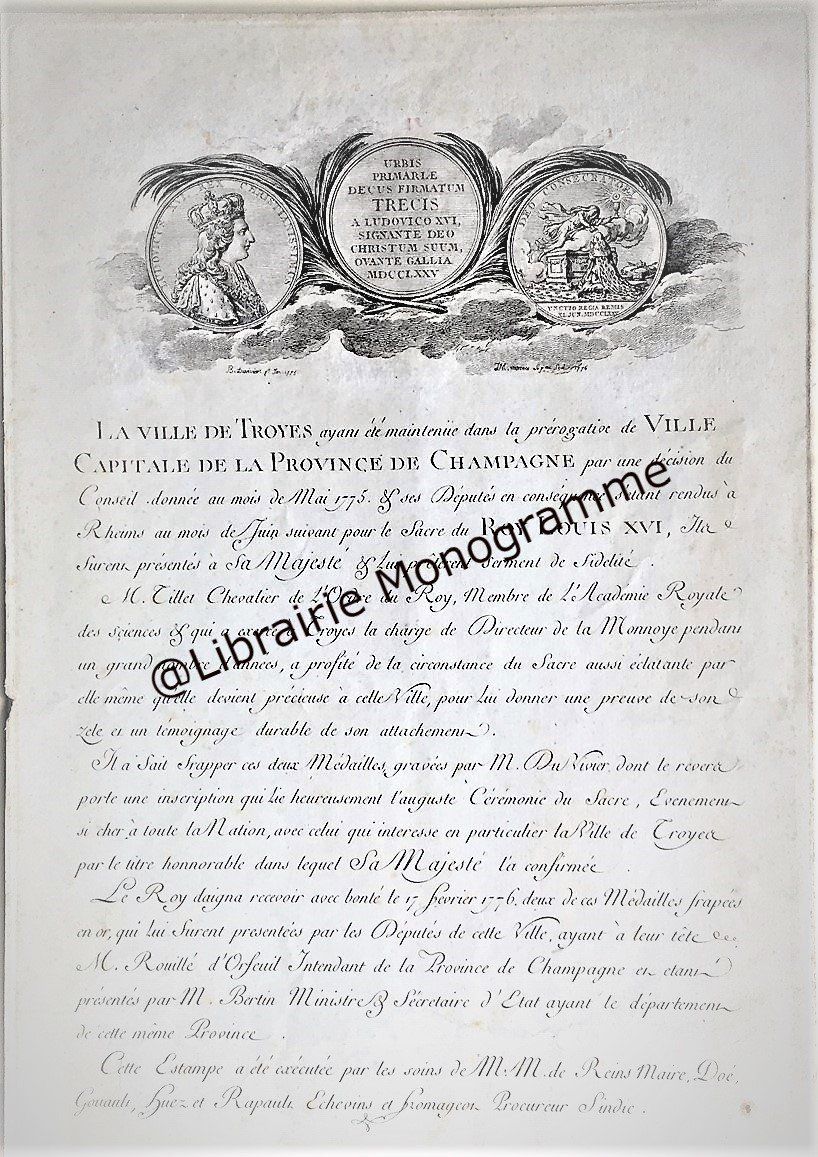 LUDOVICUS XVI REX CHRISTIANISS.
URBIS
PRIMARIÆ
DECUS FIRMATUM
TRECIS
A LUDOVICO XVI,
SIGNANTE DEO
CHRISTUM SUUM,
OVANTE GALLIA
MDCCLXXV
DEO CONSECRATORI
UNCTIO REGIA REMIS
XI. JUN. MDCCLXXV
LA VILLE DE TROYES ayant été maintenüe dans la prérogative de VILLE
CAPITALE DE LA PROVINCE DE CHAMPAGNE par une décision du
Conseil donnée au mois de Mai 1775. & ses Députés en conséquence s'étant rendus à
Rheims au mois de Juin suivant pour le Sacre du ROY LOUIS XVI, Ils
furent présentés à Sa Majesté & Lui prêterent Serment de fidelité.
M. Tillet Chevalier de L'Ordre du Roy, Membre de L'Académie Royale
des sciences & qui a exercé à Troyes la charge de Directeur de la Monnoye pendant
un grand nombre d'années, a profité de la circonstance du Sacre aussi éclatante par
elle même qu'elle devient précieuse à cette Ville, pour Lui donner une preuve de son
zele et un témoignage durable de son attachement.
Il a fait frapper ces deux Médailles, gravées par M. Du Vivier, dont le revers
porte une inscription qui Lie heureusement l'auguste Cérémonie du Sacre, Evenement
si cher à toute la Nation, avec celui qui interesse en particulier la Ville de Troyes
par le titre honnorable dans lequel Sa Majesté l'a confirmée.
Le Roy daigna recevoir avec bonté le 17 fevrier 1776, deux de ces Médailles frapées
en or, qui Lui furent presentées par les Députés de cette Ville, ayant à leur tête
M. Rouillé d'Orfeuil Intendant de la Province de Champagne et étant
présentés par M. Bertin Ministre & Sécretaire d'Etat ayant le département
de cette même Province.
Cette Estampe a été exécutée par les soins de M.M. de Reins Maire, Doé,
Gouault, Huez et Rapault Echevins et Fromageot Procureur Sindic.
@Librairie Monogramme